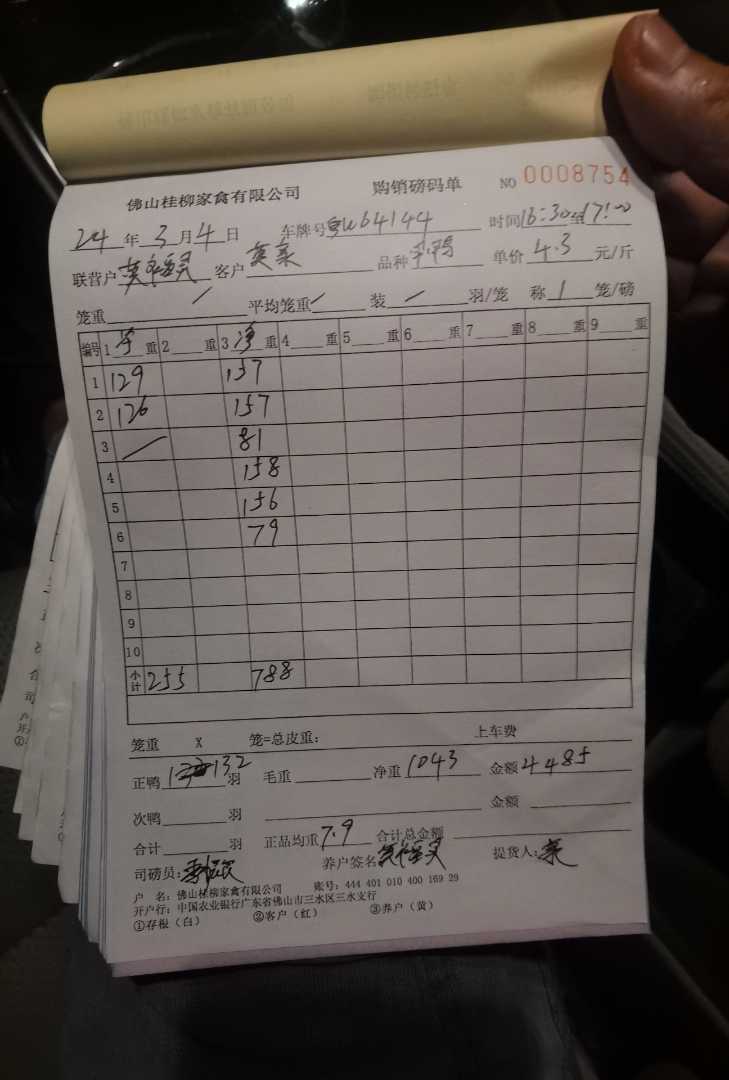 佛山桂柳家禽有限公司 购销磅码单 NO 0008754
24年3月4日 车牌号粤W64144 时间16:30至17:00
联营户 客户 品种 单价4.3元/斤
笼重/ 平均笼重/ 装/羽/笼 称1笼/磅
编号 1净重 2重 3净重 4重 5重 6重 7重 8重 9重
1 129 157
2 126 157
3 / 81
4 158
5 156
6 79
7
8
9
10
小计 255 788
笼重 X 笼=总皮重: 上车费
正鸭132羽 毛重 净重1043 金额4485
次鸭 羽 金额
合计 羽 正品均重7.9 合计总金额
司磅员: 养户签名 提货人:
户 名: 佛山桂柳家禽有限公司 账号: 444 401 010 400 169 29
开户行: 中国农业银行广东省佛山市三水区三水支行
①存根(白) ②客户(红) ③养户(黄)